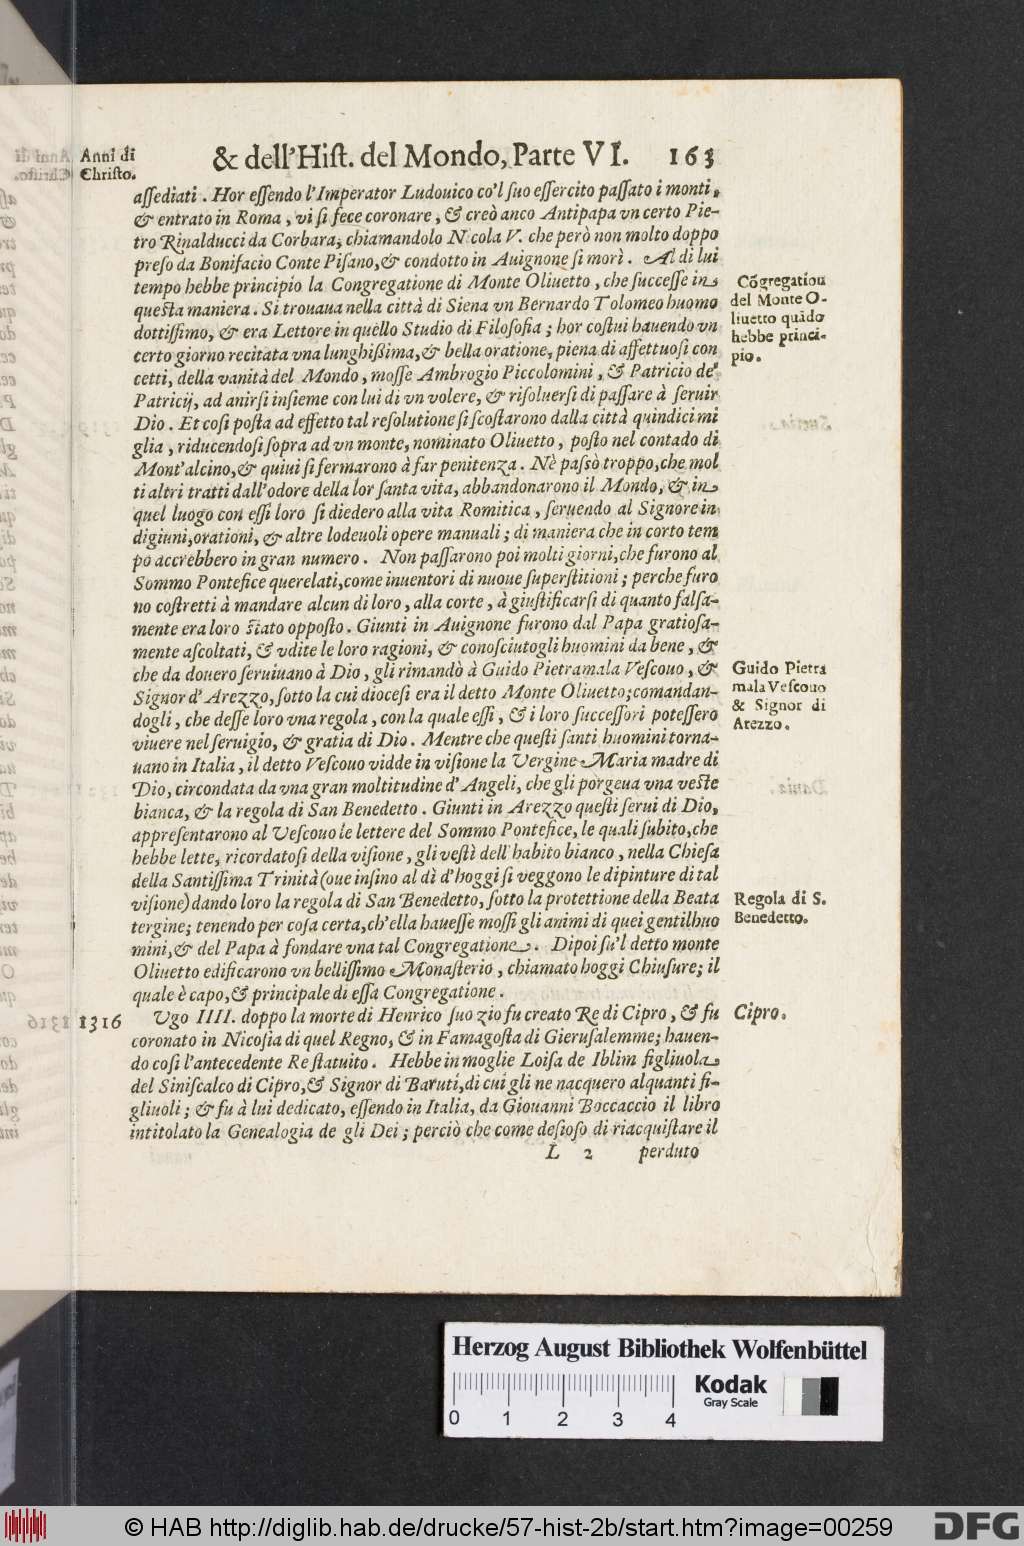 Anni di
Christo.
& dell'Hist. del Mondo, Parte VI. 163
assediati. Hor essendo l'Imperator Ludouico co'l suo essercito passato i monti,
& entrato in Roma, vi si fece coronare, & creò anco Antipapa vn certo Pie-
tro Rinalducci da Corbara, chiamandolo N cola V. che però non molto doppo
preso da Bonifacio Conte Pisano, & condotto in Auignone si morì. Al di lui
tempo hebbe principio la Congregatione di Monte Oliuetto, che successe in
questa maniera. Si trouaua nella città di Siena vn Bernardo Tolomeo huomo
dottissimo, & era Lettore in quello Studio di Filosofia; hor costui hauendo vn
certo giorno recitata vna lunghißima, & bella oratione, piena di affettuosi con
cetti, della vanità del Mondo, mosse Ambrogio Piccolomini, & Patricio de'
Patricij, ad anirsi insieme con lui di vn volere, & risoluersi di passare à seruir
Dio. Et cosi posta ad effetto tal resolutione si scostarono dalla città quindici mi
glia, riducendosi sopra ad vn monte, nominato Oliuetto, posto nel contado di
Mont'alcino, & quiui si fermarono à far penitenza. Nè passò troppo, che mol
ti altri tratti dall'odore della lor santa vita, abbandonarono il Mondo, & in
quel luogo con essi loro si diedero alla vita Romitica, seruendo al Signore in
digiuni, orationi, & altre lodeuoli opere manuali; di maniera che in corto tem
po accrebbero in gran numero. Non passarono poi molti giorni, che furono al
Sommo Pontefice querelati, come inuentori di nuoue superstitioni; perche furo
no costretti à mandare alcun di loro, alla corte, à giustificarsi di quanto falsa-
mente era loro stato opposto. Giunti in Auignone furono dal Papa gratiosa-
mente ascoltati, & vdite le loro ragioni, & conosciutogli huomini da bene, &
che da douero seruiuano à Dio, gli rimandò à Guido Pietramala Vescouo, &
Signor d'Arezzo, sotto la cui diocesi era il detto Monte Oliuetto; comandan-
dogli, che desse loro vna regola, con la quale essi, & i loro successori potessero
viuere nel seruigio, & gratia di Dio. Mentre che questi santi huomini torna-
uano in Italia, il detto Vescouo vidde in visione la Vergine Maria madre di
Dio, circondata da vna gran moltitudine d'Angeli, che gli porgeua vna veste
bianca, & la regola di San Benedetto. Giunti in Arezzo questi serui di Dio,
appresentarono al Vescouo le lettere del Sommo Pontefice, le quali subito, che
hebbe lette, ricordatosi della visione, gli vestì dell'habito bianco, nella Chiesa
della Santissima Trinità (oue insino al dì d'hoggi si veggono le dipinture di tal
visione) dando loro la regola di San Benedetto, sotto la protettione della Beata
tergine; tenendo per cosa certa, ch'ella hauesse mossi gli animi di quei gentilhuo
mini, & del Papa à fondare vna tal Congregatione. Dipoi su'l detto monte
Oliuetto edificarono vn bellissimo Monasterio, chiamato hoggi Chiusure; il
quale è capo, & principale di essa Congregatione.
Cõgregation
del Monte O-
liuetto quãdo
hebbe princi-
pio.
Guido Pietra
mala Vescouo
& Signor di
Arezzo.
Regola di S.
Benedetto.
1316
Vgo IIII. doppo la morte di Henrico suo zio fu creato Re di Cipro, & fu
coronato in Nicosia di quel Regno, & in Famagosta di Gierusalemme; hauen-
do cosi l'antecedente Re statuito. Hebbe in moglie Loisa de Iblim figliuola
del Siniscalco di Cipro, & Signor di Baruti, di cui gli ne nacquero alquanti fi-
gliuoli; & fu à lui dedicato, essendo in Italia, da Giouanni Boccaccio il libro
intitolato la Genealogia de gli Dei; perciò che come desioso di riacquistare il
Cipro.
L 2 perduto
Herzog August Bibliothek Wolfenbüttel
Kodak
Gray Scale
0 1 2 3 4
© HAB http://diglib.hab.de/drucke/57-hist-2b/start.htm?image=00259
DFG